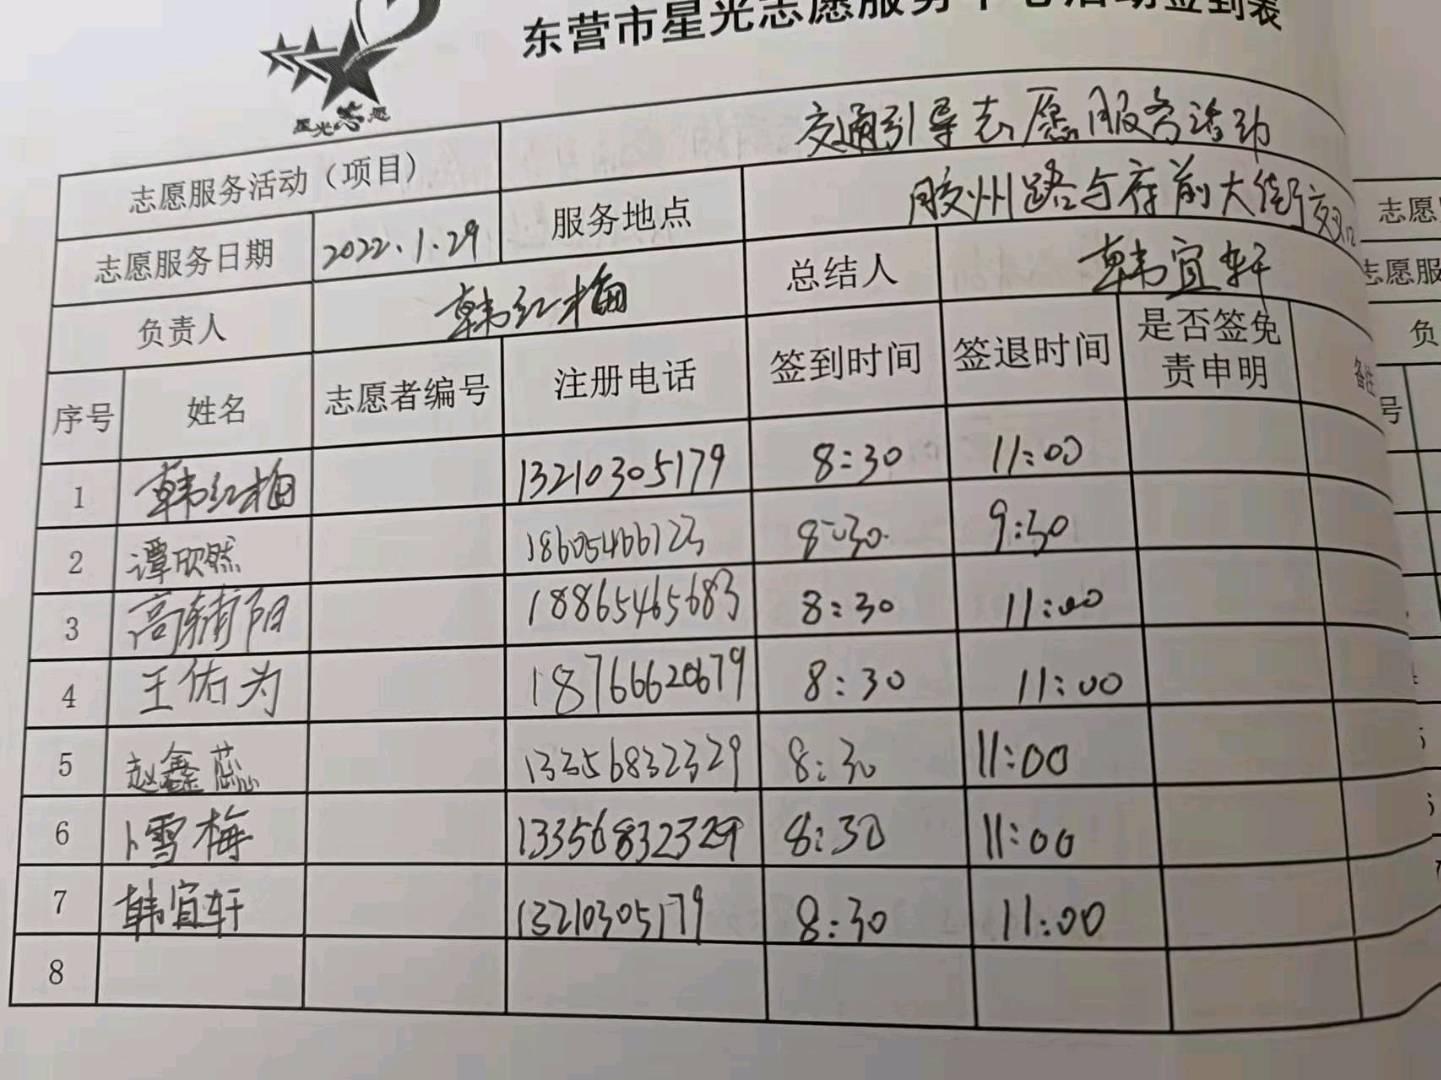 东营市星光志愿服务中心活动签到表
星光志愿
志愿服务活动（项目） 交通引导志愿服务活动
志愿服务日期 2022.1.29 服务地点 胶州路与府前大街交叉口
负责人 韩红梅 总结人 韩宜轩
序号 姓名 志愿者编号 注册电话 签到时间 签退时间 是否签免责申明 备注
1 韩红梅 13210305179 8:30 11:00
2 谭欣然 18605466123 8:30 9:30
3 高辅阳 18865465683 8:30 11:00
4 王佑为 18766620679 8:30 11:00
5 赵鑫蕊 13356832329 8:30 11:00
6 卜雪梅 13356832329 8:30 11:00
7 韩宜轩 13210305179 8:30 11:00
8
志愿
志愿服
负
号